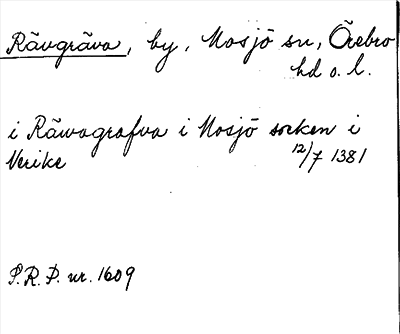 Rävgräva, by, Mosjö sn, Örebro
hd o. l.
i Räwagrafva i Mosjö socken i
Nerike 12/7 1381
S.R.P. nr. 1609